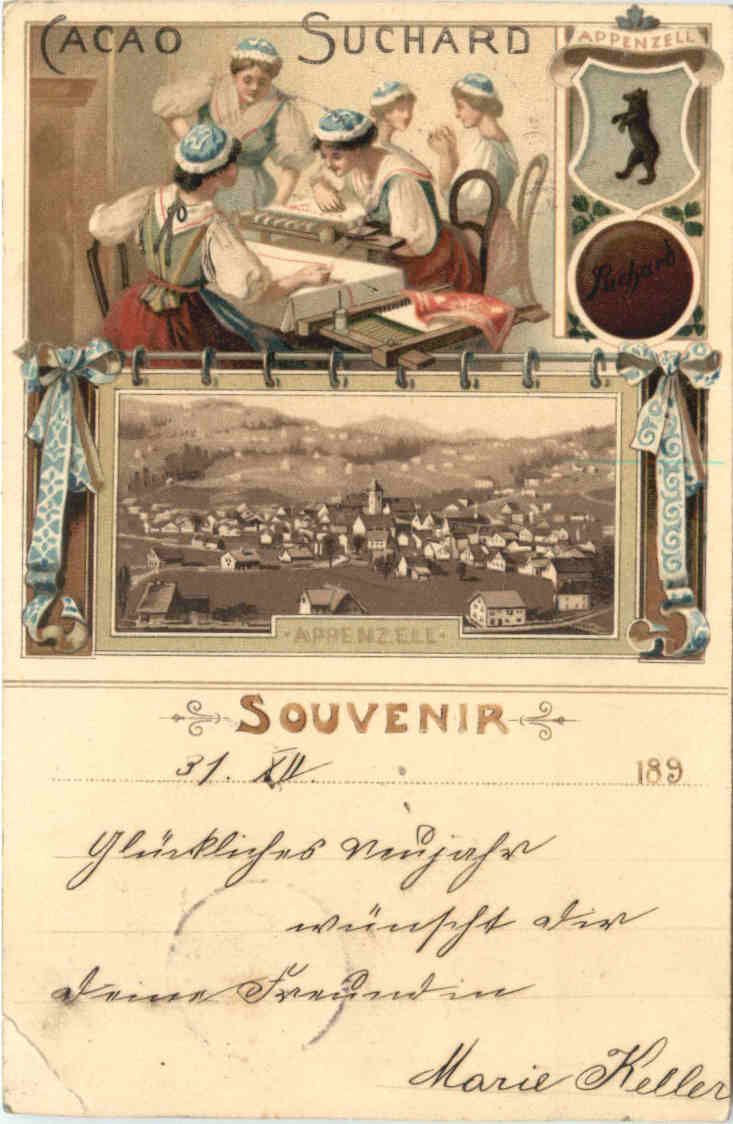 CACAO SUCHARD
APPENZELL
Suchard
·APPENZELL·
SOUVENIR
31. XII. 189
Glückliches Neujahr
wünscht dir
deine Freundin
Marie Keller